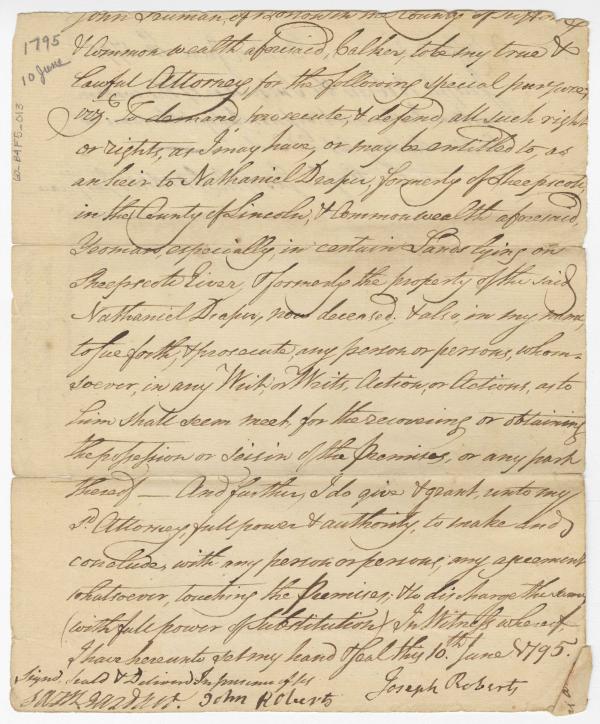 1795
10 June
John Truman, of Boston in the County of Suffolk &
Commonwealth aforesaid, Calker, to be my true &
lawful Attorney, for the following special purposes,
viz.t To demand, prosecute, & defend, all such right
or rights, as I may have, or may be entitled to, as
an heir to Nathaniel Draper, formerly of Sheepscote,
in the County of Lincoln, & Commonwealth aforesaid,
Yeoman, especially, in certain Lands lying on
Sheepscote River, & formerly the property of the said
Nathaniel Draper, now deceased. & also, in my name,
to sue forth, & prosecute, any person or persons, whom-
soever, in any Writ, or Writs, Action, or Actions, as to
him shall seem meet, for the recovering or obtaining
the possession or seisin of the Premises, or any part
thereof — And further, I do give & grant, unto my
sd. Attorney, full power & authority, to make and
conclude, with any person or persons, any agreement
whatsoever, touching the Premises; & to discharge the same
(with full power of Substitution) In Witness whereof
I have hereunto set my hand & seal this 10.th June 1795.
Signd, Seald & Delivered In presence of us
John Roberts
Joseph Roberts